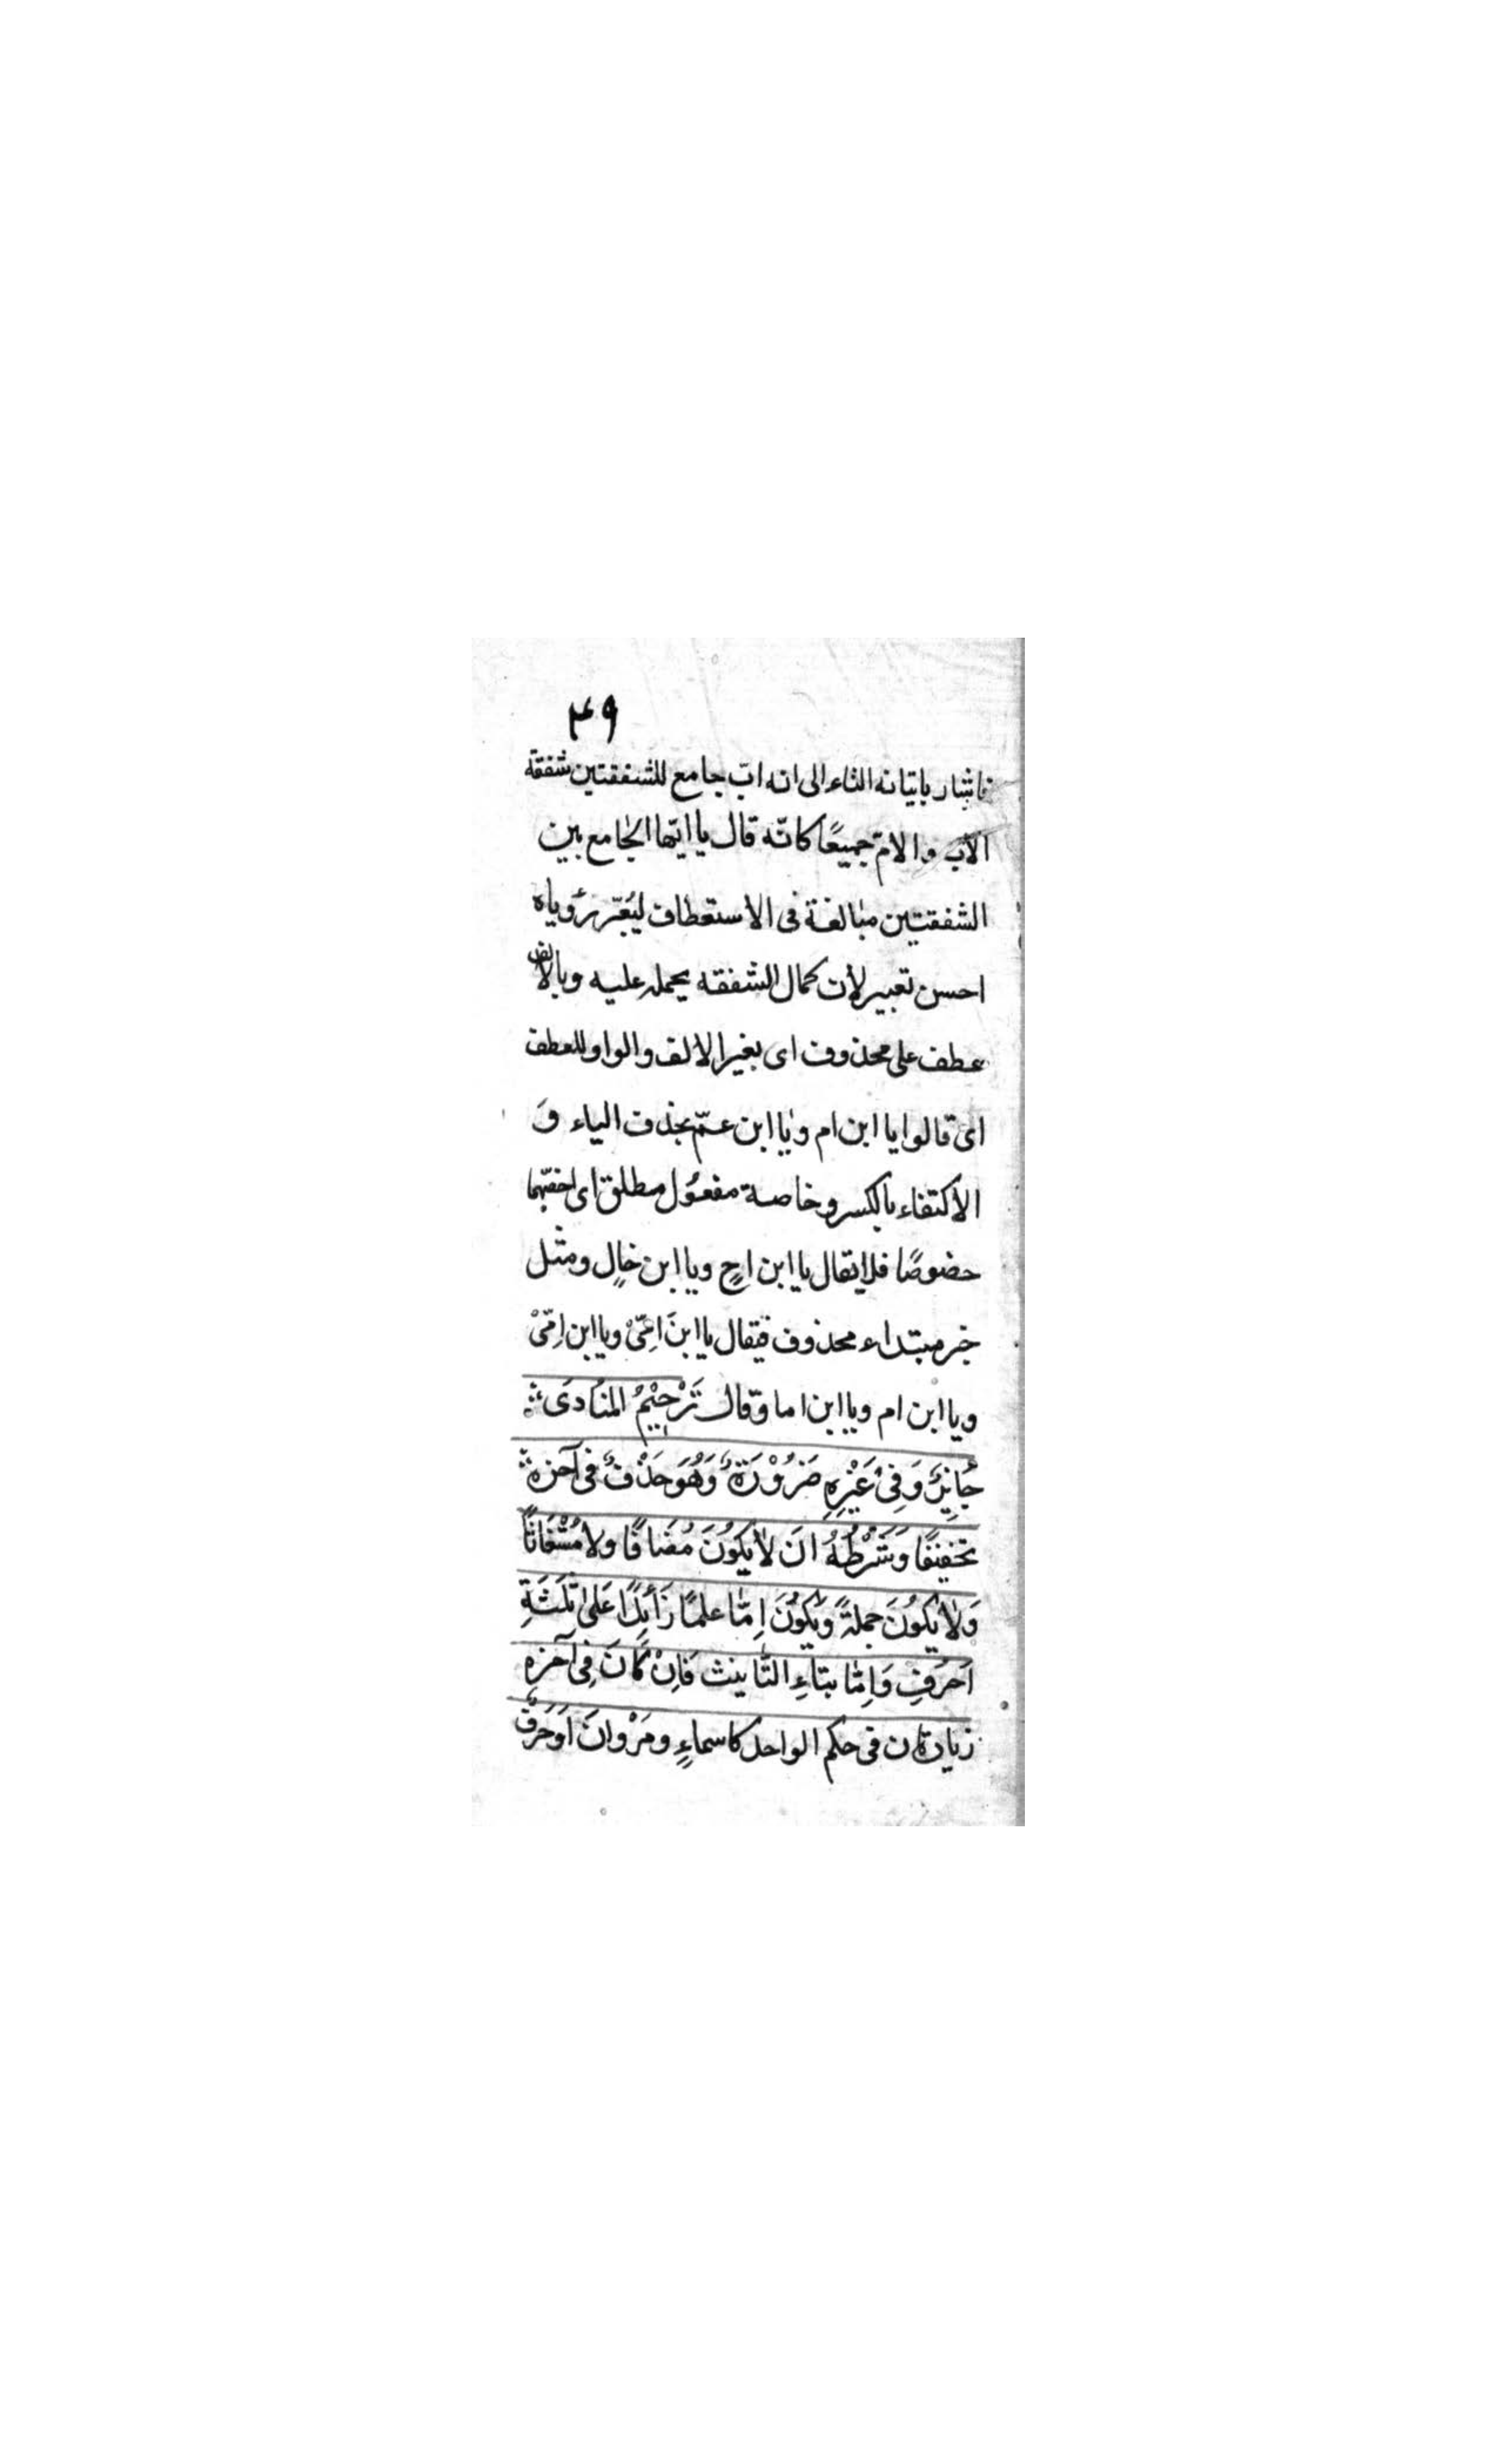 ۴۹
فاشار باتيانه التاء الى انه ابّ جامع للشفقتين شفقة
الاب والامّ جميعًا كانّه قال يا ايّها الجامع بين
الشفقتين مبالغة فى الاستعطاف ليُعَبّر رؤياه
احسن تعبير لأن كمال الشفقه يحمله عليه وبالالف
عطف على محذوف اى بغير الالف والواو للعطف
اى قالوا يا ابن ام ويا ابن عمّ بحذف الياء وَ
الاكتفاء بالكسر وخاصة مفعول مطلق اى اخصّهما
خصوصًا فلا يقال يا ابن اخٍ ويا ابن خالٍ ومثل
خبر مبتداء محذوف فيقال يا ابنَ امِّىْ ويا ابن امِّىْ
ويا ابن ام ويا ابن اما وقال تَرْخِيْمُ المنَادَى
جَايِزٌ وَفِىْ غَيْرِهِ ضَرُوْرَةٌ وَهُوَ حَذْفٌ فى آخره
تخفيفًا وَشَرْطُهُ انَ لاَ يَكُوُنَ مُضَافًا ولا مُسْتَغَاثًا
وَلاَ يَكوُنَ جملةً وَيَكوُنَ اِمَّا علمًا زَائِدًا عَلىٰ ثلَثَةِ
اَحرُفٍ وَاِمَّا بتَاءِ التَّانيث فَاِنْ كَانَ فِى آخرِهِ
زيادتان فى حكم الواحد كاسماءٍ ومَرْوانَ اَوحَرفٌ